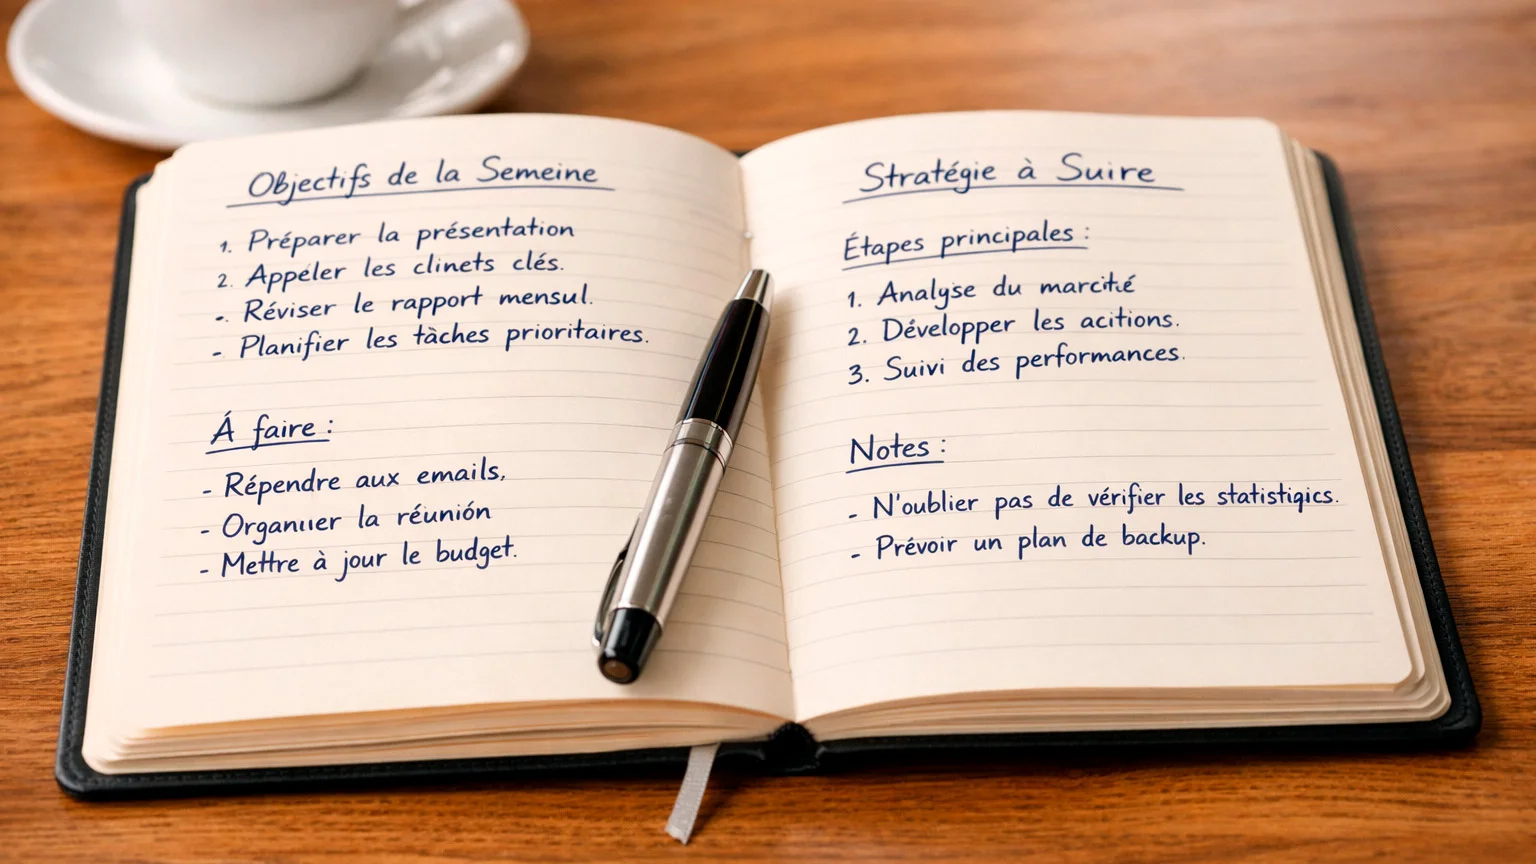 Objectifs de la Semeine
1. Préparer la présentation
2. Appéler les clinets clés.
-. Réviser le rapport mensul.
- Planifier les tàches prioritaires.
Á faire :
- Répendre aux emails,
- Organııer la réunión
- Mettre à jour le budget.
Stratégie à Suire
Étapes principales :
1. Analyse du marcité
2. Développer les acitions.
3. Suivi des performances.
Notes :
- N'oublier pas de vérifier les statistiqics.
- Prévoir un plan de backup.